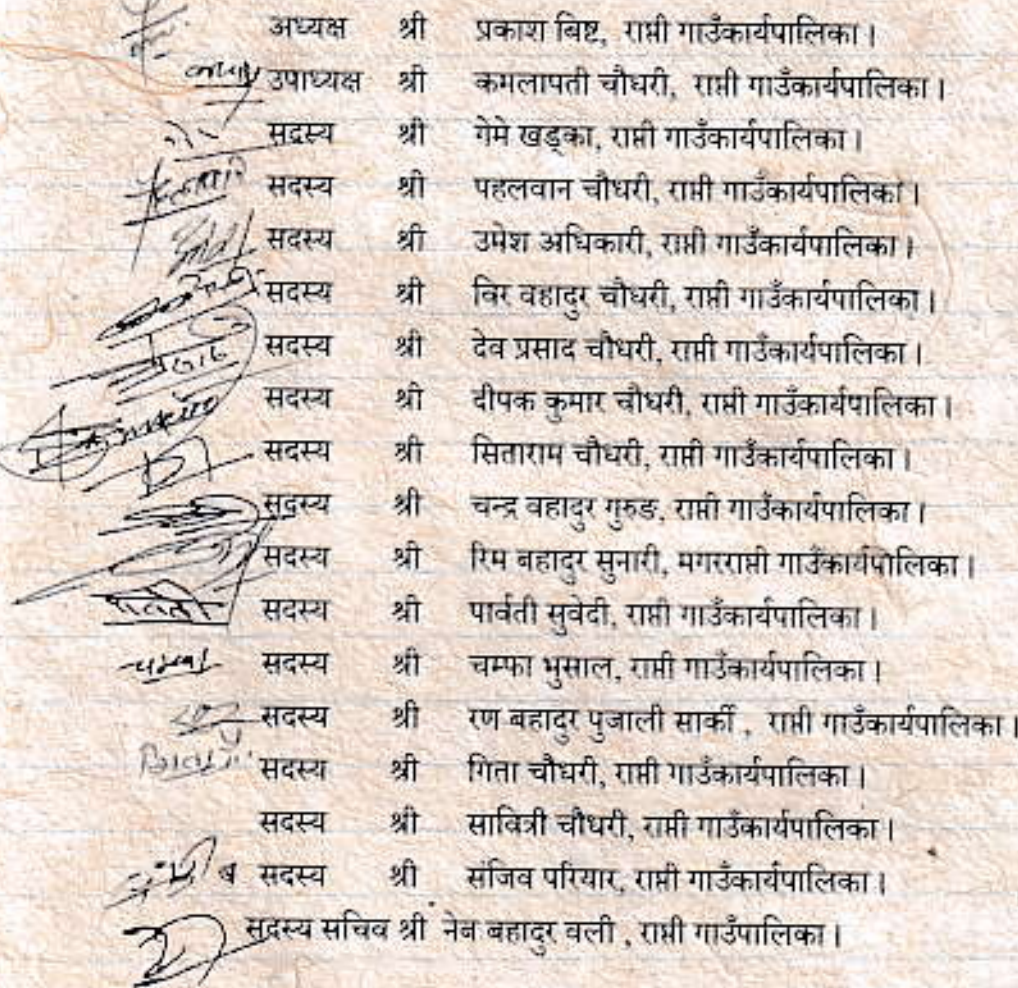 अध्यक्ष श्री प्रकाश बिष्ट, राप्ती गाउँकार्यपालिका।
उपाध्यक्ष श्री कमलापती चौधरी, राप्ती गाउँकार्यपालिका।
सदस्य श्री गेमे खड्का, राप्ती गाउँकार्यपालिका।
सदस्य श्री पहलवान चौधरी, राप्ती गाउँकार्यपालिका।
सदस्य श्री उमेश अधिकारी, राप्ती गाउँकार्यपालिका।
सदस्य श्री विर वहादुर चौधरी, राप्ती गाउँकार्यपालिका।
सदस्य श्री देव प्रसाद चौधरी, राप्ती गाउँकार्यपालिका।
सदस्य श्री दीपक कुमार चौधरी, राप्ती गाउँकार्यपालिका।
सदस्य श्री सिताराम चौधरी, राप्ती गाउँकार्यपालिका।
सदस्य श्री चन्द्र वहादुर गुरुङ, राप्ती गाउँकार्यपालिका।
सदस्य श्री रिम बहादुर सुनारी, मगरराप्ती गाउँकार्यपालिका।
सदस्य श्री पार्वती सुवेदी, राप्ती गाउँकार्यपालिका।
सदस्य श्री चम्फा भुसाल, राप्ती गाउँकार्यपालिका।
सदस्य श्री रण बहादुर पुजाली सार्की , राप्ती गाउँकार्यपालिका।
सदस्य श्री गिता चौधरी, राप्ती गाउँकार्यपालिका।
सदस्य श्री सावित्री चौधरी, राप्ती गाउँकार्यपालिका।
सदस्य श्री संजिव परियार, राप्ती गाउँकार्यपालिका।
सदस्य सचिव श्री नेत्र बहादुर वली , राप्ती गाउँपालिका।